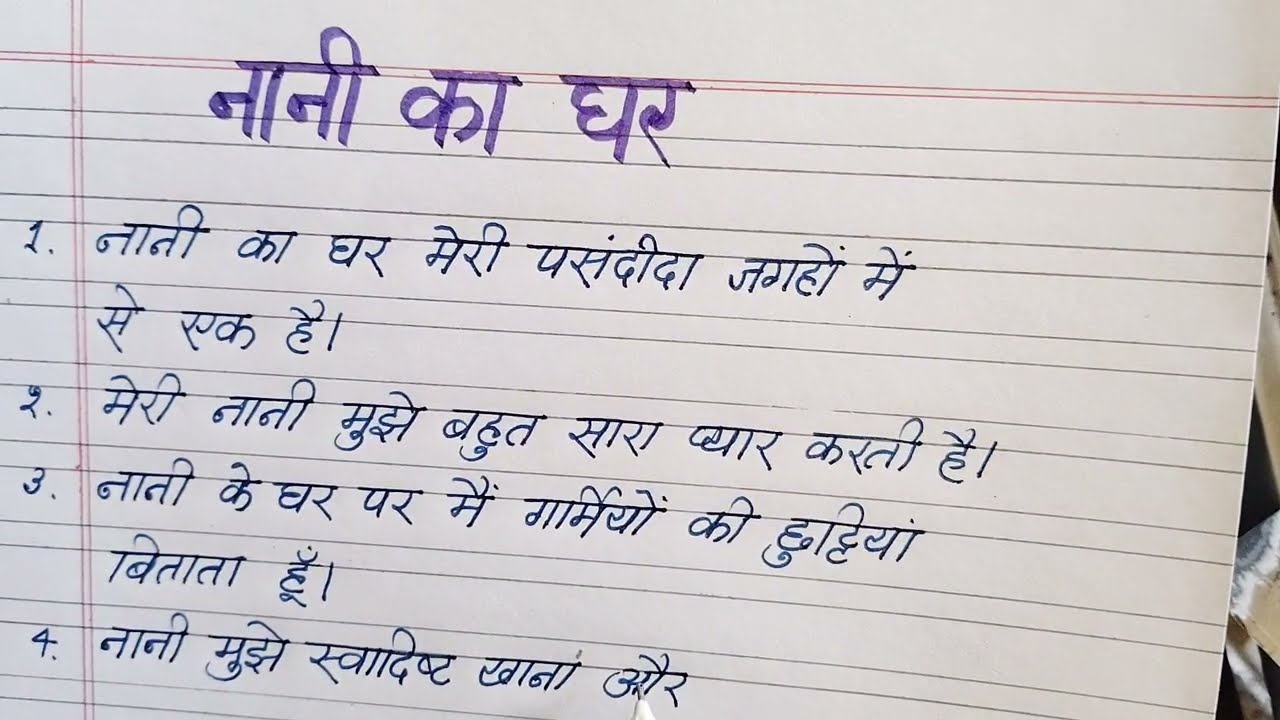 नानी का घर
१. नानी का घर मेरी पसंदीदा जगहों में
से एक है।
२. मेरी नानी मुझे बहुत सारा प्यार करती है।
३. नानी के घर पर मैं गर्मियों की छुट्टियां
बिताता हूँ।
4. नानी मुझे स्वादिष्ट खानां और